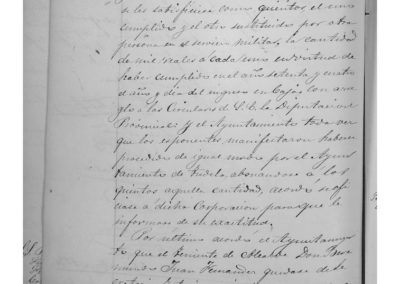 se les satisficiera como quintos, el uno
cumplido y el otro sustituido por otra
persona en el servicio militar, la cantidad
de mil reales á cada uno en virtud de
haber cumplido en el año setenta y cuatro
el año y dia del ingreso en Caja, con arre
glo á las Circulares de S. E. la Diputacion
Provincial: Y el Ayuntamiento toda vez
que los esponentes manifestaron haberse
procedido de igual modo por el Ayun
tamiento de Tudela, abonandose á los
quintos aquella cantidad, acordo se ofi
ciase á dicha Corporacion para que le
informase de su exactitud.
Por último acordó el Ayuntamien
to que el teniente de Alcalde Don
Juan Fernandez quedase de